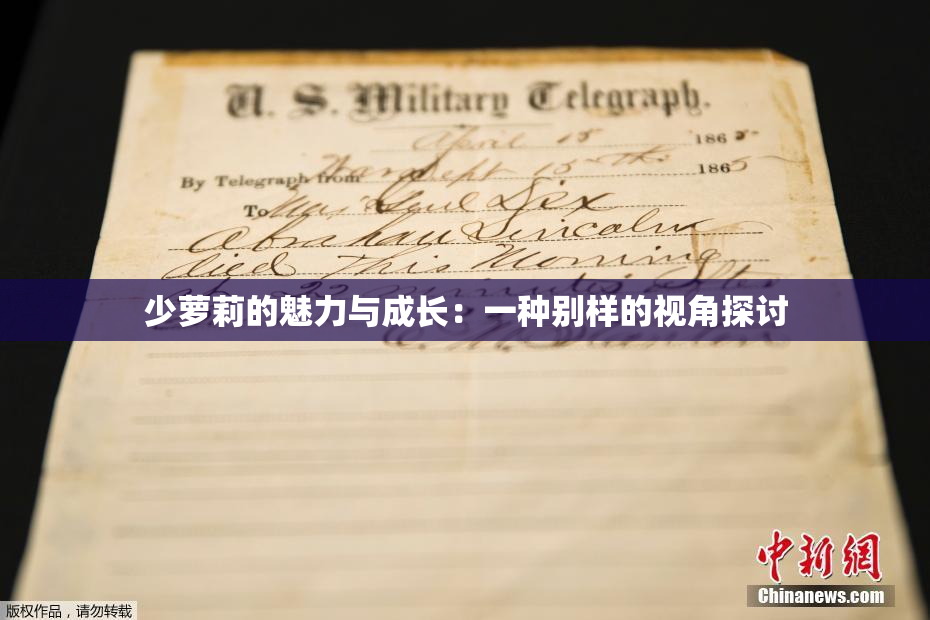 U. S. Military Telegraph.
April 15 1865
By Telegraph from War Dept 15th 1865
To Maj Genl Dix
Abraham Lincoln
died This Morning
at 22 minutes after
少萝莉的魅力与成长：一种别样的视角探讨
E. M. Stanton
中新网
Chinanews.com
版权作品，请勿转载